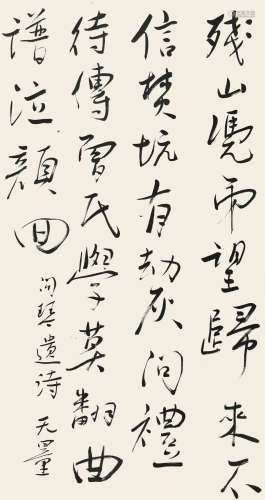 殘山凭雨望歸來不
信焚坑有劫灰問禮
待傳曾氏學莫翻曲
譜泣顏回
問琴遺詩 无量